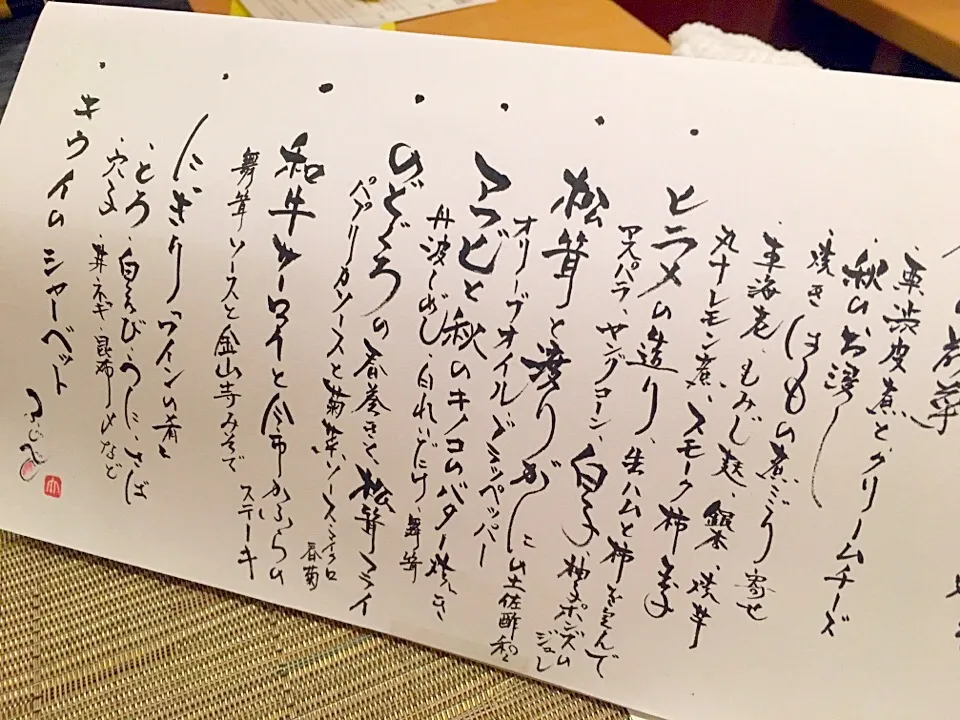 の前菜
・栗渋皮煮とクリームチーズ
・秋のお浸し
・焼きはもの煮こごり寄せ
・車海老、もみじ麩、銀杏、焼芋
丸十レモン煮、スモーク柿玉子
・ヒラメの造り、生ハムと柿を
アスパラ、ヤングコーン、白子、柚子ポンズのジュレ
・松茸と渡りがにの土佐酢和え
オリーブオイル、ブラックペッパー
・アワビと秋のキノコのバター焼き
丹波しめじ、白れいだけ、舞茸
・のどぐろの春巻きと、松茸フライ
パプリカソースと菊菜ソース
春菊
・和牛サーロインと合市かぶらの
ステーキ
舞茸ソースと金山寺みそで
・にぎり「ワインの肴」
・とろ、白えび、うに、さば
・穴子、芽ネギ、昆布〆など
・キウイのシャーベット